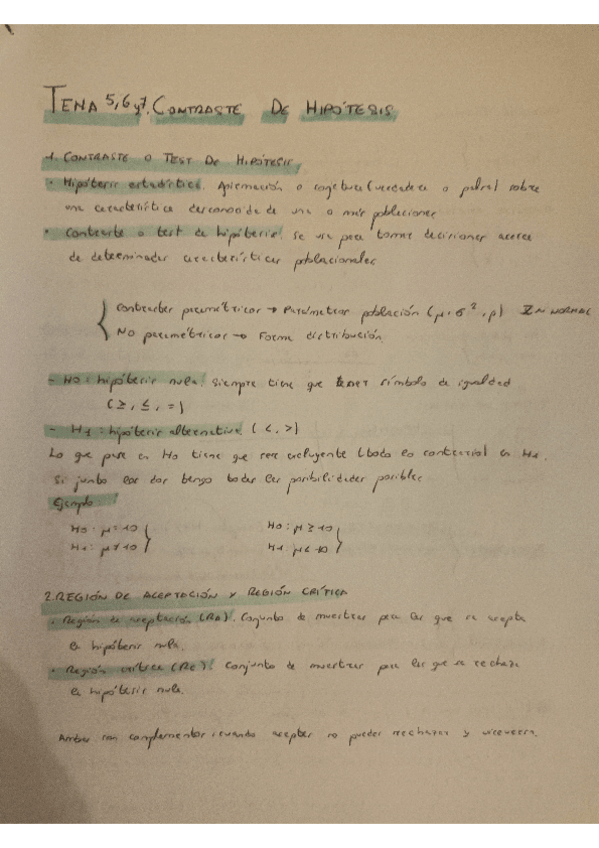 TEMA 5,6 y 7. CONTRASTE DE HIPÓTESIS
1. CONTRASTE O TEST DE HIPÓTESIS
· Hipótesis estadística. Afirmación o conjetura (verdadera o falsa) sobre
una característica desconocida de una o más poblaciones
· Contraste o test de hipótesis. Se usa para tomar decisiones acerca
de determinadas características poblacionales
Contrastes paramétricos → Parámetros población (μ, σ², p) IN NORMAL
No paramétricos → Forma distribución
- H0: hipótesis nula. Siempre tiene que tener símbolo de igualdad
(≥, ≤, =)
- H1: hipótesis alternativa (<, >)
Lo que pase en H0 tiene que ser excluyente (todo lo contrario) en H1.
Si junto las dos tengo todas las posibilidades posibles
Ejemplo:
H0: μ=10 H0: μ ≥ 10
H1: μ ≠ 10 H1: μ < 10
2. REGIÓN DE ACEPTACIÓN Y REGIÓN CRÍTICA
· Región de aceptación (RA). Conjunto de muestras para las que se acepta
la hipótesis nula.
· Región crítica (RC). Conjunto de muestras para las que se rechaza
la hipótesis nula.
Ambas son complementos, cuando aceptas no puedes rechazar y viceversa.